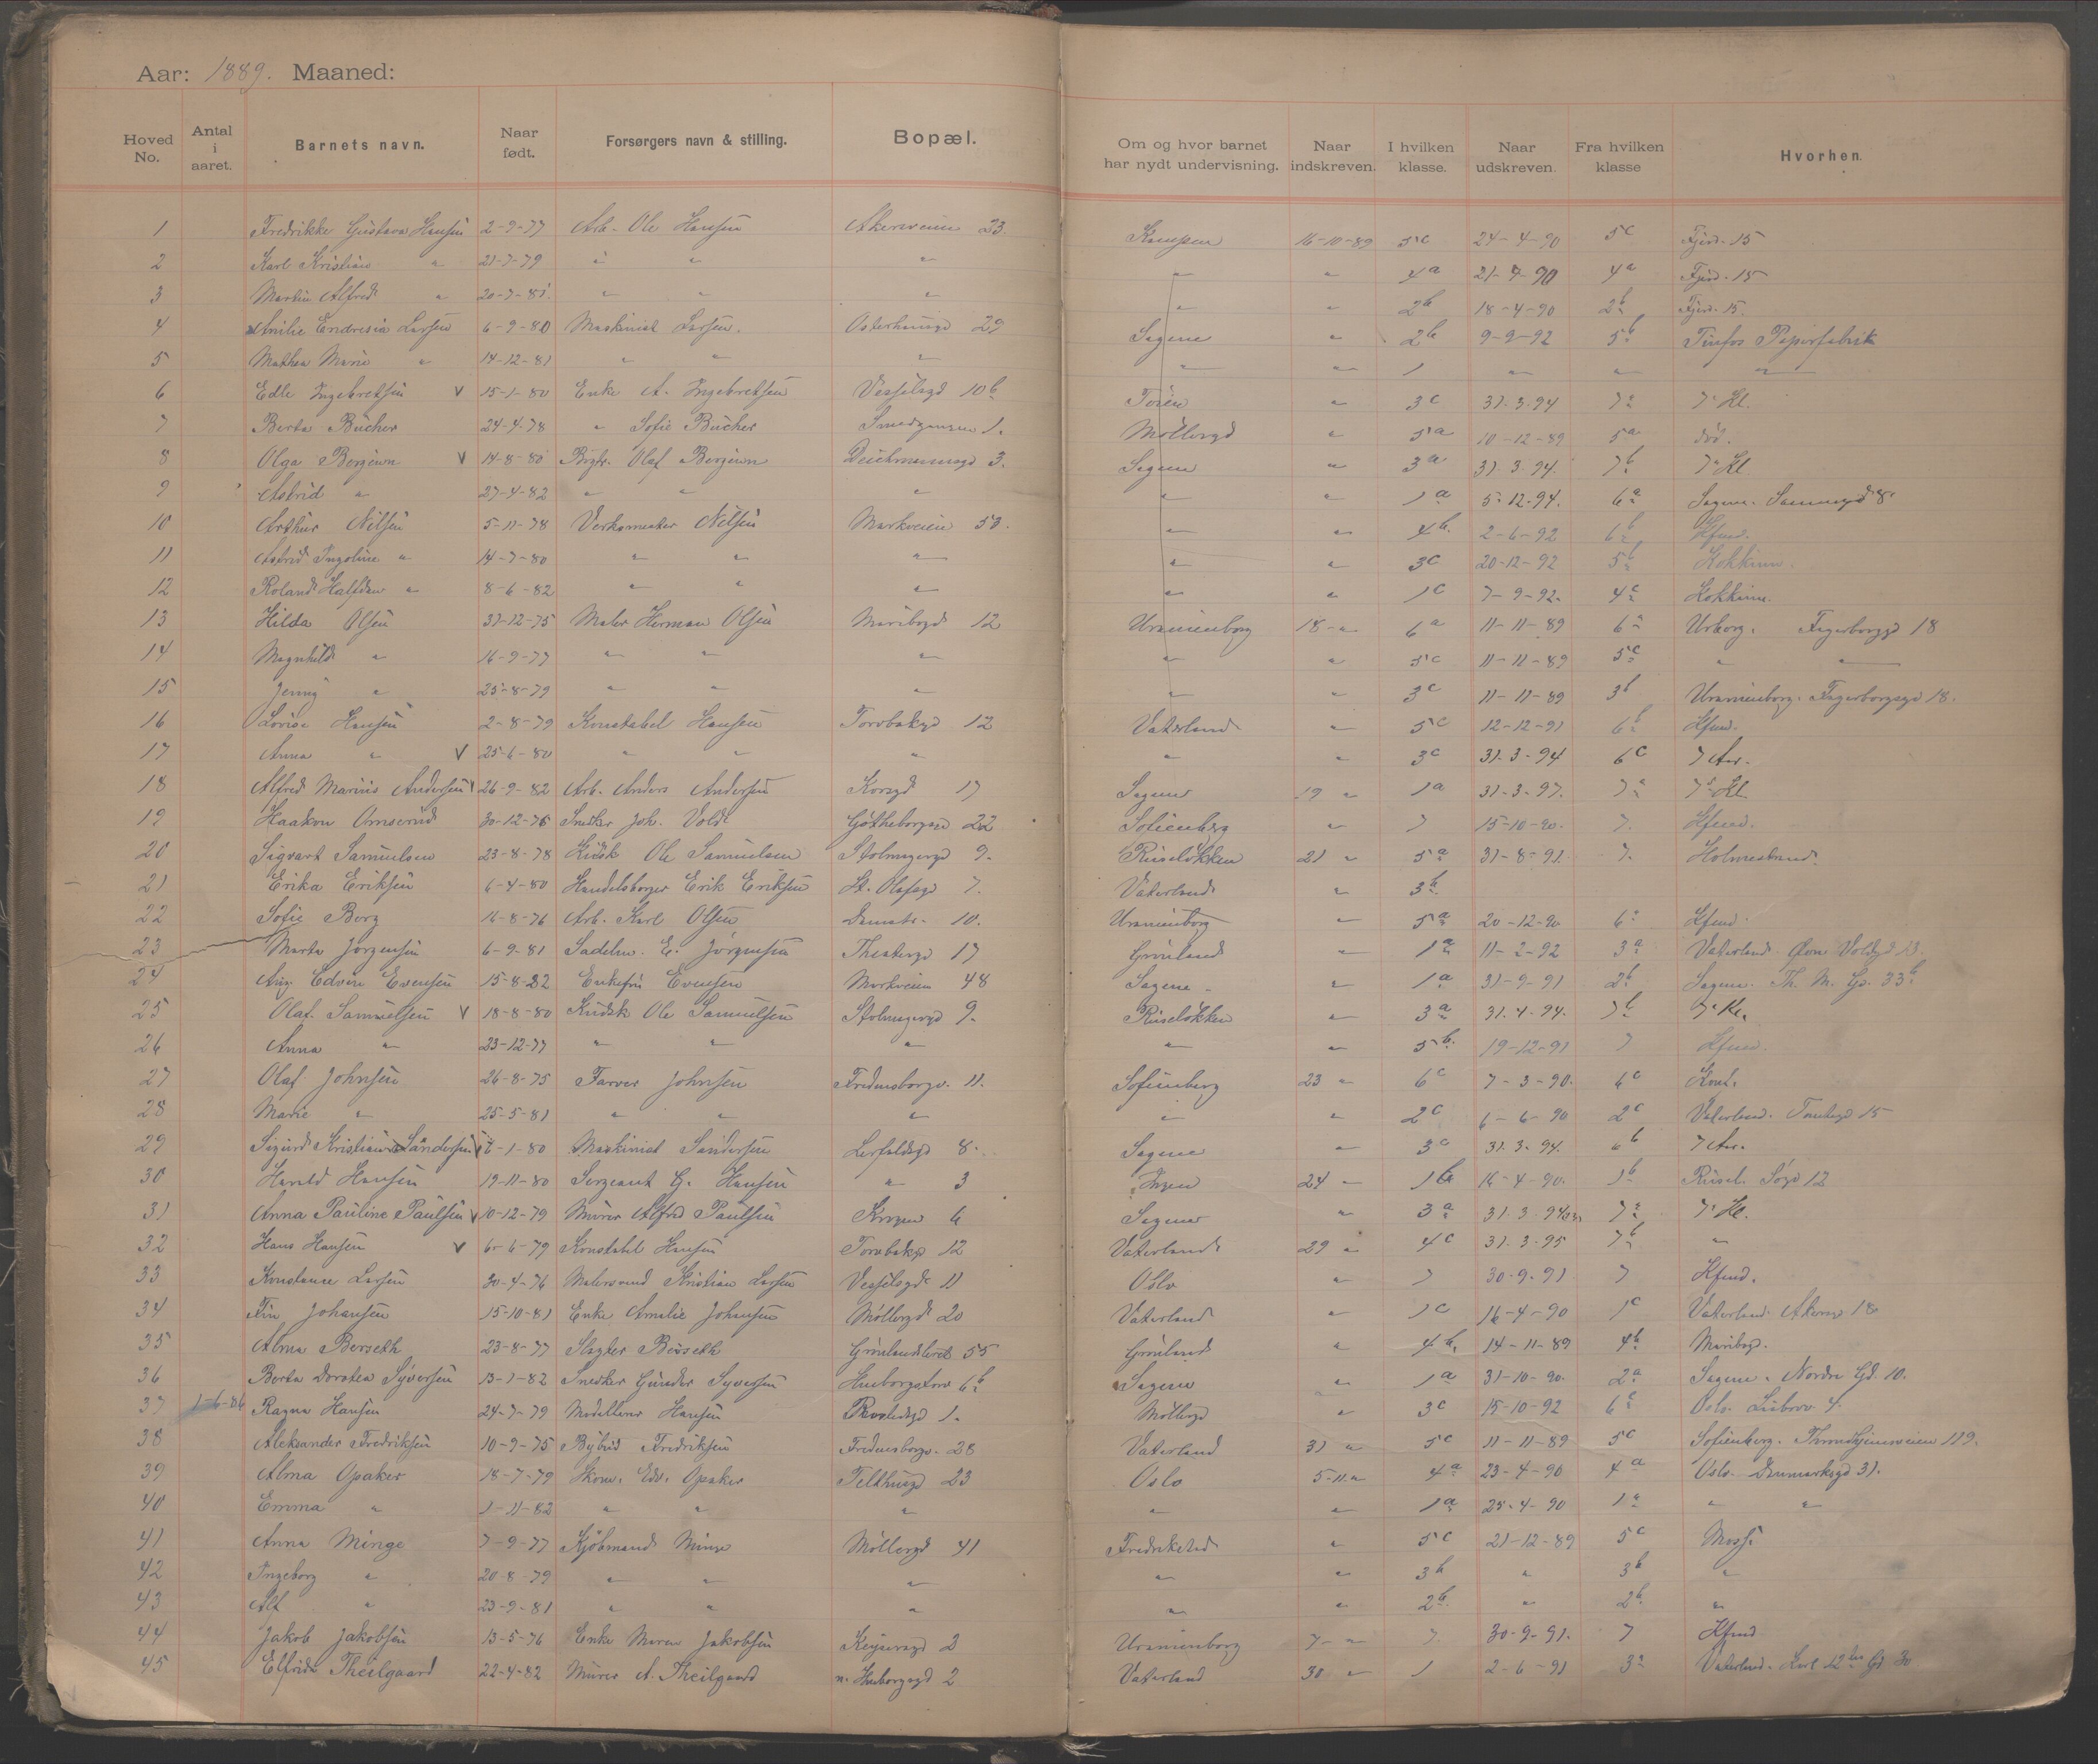 Aar: 1889. Maaned:
Hoved No. Antal i aaret. Barnets navn. Naar født. Forsørgers navn & stilling. Bopæl. Om og hvor barnet har nydt undervisning. Naar indskreven. I hvilken klasse. Naar udskreven. Fra hvilken klasse Hvorhen.
1 Fredrikke Gustava Hansen 2-9-77 Arb. Ole Hansen Akersveien 23. Kampen 16-10-89 5c 24-4-90 5c Fjerd. 15
2 Karl Kristian " 21-7-79 " " " " " 4a 21-4-90 4a Fjerd. 15
3 Martin Alfred " 20-7-81 " " " " " 2b 18-4-90 2b Fjerd. 15.
4 Emilie Endresia Larsen 6-9-80 Maskinist Larsen. Osterhausgd 29 Sagene " 2b 9-9-92 5b Tinfos Papirfabrik
5 Mathea Marie " 14-12-81 " " " " " 1 " " "
6 Edle Ingebretsen V 15-1-80 Enke A. Ingebretsen Vesselsgd 10b Töien " 3c 31.3.94 7a 7. Kl.
7 Berta Bücher 24-4-78 " Sofie Bücher Smedgangen 1. Möllergd " 5a 10-12-89 5a död.
8 Olga Borgeum V 14-8-80 Olaf Borgeum Deichmansgd 3. Sagene " 3a 31.3.94. 7b 7. Kl
9 Astrid " 27-4-82 " " " " " 1a 5-12-94. 6a Sagene. Sannergd 8
10 Arthur Nilsen 5-11-78 Verksmester Nilsen Markveien 58. " " 4b. 2-6-92 6b Kfmd.
11 Astrid Ingoline " 14-7-80 " " " " " 3c 20-12-92 5b
12 Roland Halfdan " 8-6-82 " " " " " 1c 7-9-92. 4c
13 Hilda Olsen 31-12-75 Maler Herman Olsen Maribogd 12 Uranienborg 18 " 6a 11-11-89 6a Urborg. Fagerborggd 18
14 Magnhild " 16-9-77 " " " " " 5c 11-11-89 5c " "
15 Jenny " 25-8-79 " " " " " 3c 11-11-89 3b Uranienborg. Fagerborgsgd 18.
16 Lovise Hansen 2-8-79 Konstabel Hansen Torvbakgd 12 Vaterland " 5c 12-12-91 6b Kfmd.
17 Anna " V 25-6-80 " " " " " 3c 31.3-94 6c 7 Aar.
18 Alfred Marius Andersen V 26-9-82 Arb. Anders Andersen Korsgd 17 Sagene 19 " 1a 31-3-97. 7a 7. Kl
19 Haakon 30-12-76 Snedker Joh. Vold Götheborggd 22 Sofienberg " 7 15-10-90. 7. Kfmd.
20 Sigvart Samuelsen 23-8-78 Kudsk Ole Samuelsen Stolmagergd 9. Ruselökken 21 " 5a 31-8-91. 7. Holmestrand.
21 Erika Eriksen 6-4-80 Handelsborger Erik Eriksen St. Olafsgd 7. Vaterland " 3b.
22 Sofie Berg 16-8-76 Arb. Karl Olsen Damstr. 10. Uranienborg " 5a 20-12-90 6a Kfmd.
23 Marta Jörgensen 6-9-81 Sadelm. E. Jörgensen Theatergd 17 Grönland " 1a 11-2-92 3a Vaterland. Övre Voldgd 13.
24 Aug. Edvin Evensen 15-8-82 Enkefru Evensen Markveien 48 Sagene " 1a 31-9-91 2b Sagene. Th. M. Gd. 33b
25 Olaf Samuelsen V 18-8-80 Kudsk Ole Samuelsen Stolmagergd 9. Ruselökken " 3a 31.4.94. 7b 7. Kl.
26 Anna " 23-12-77 " " " " " 5b. 19-12-91 7 Kfmd.
27 Olaf Johnsen 26-8-75 Farver Johnsen Fredensborgv. 11. Sofienberg 23 " 6c 7-3-90. 6c Konf.
28 Marie " 25-5-81 " " " " " 2c 6-6-90 2c Vaterland. Tomtegd 15
29 Sigurd Kristian Sandersen V 6-1-80 Maskinist Sandersen Lerfaldsgd 8. Sagene " 3c 31.3.94. 6b 7 Aar.
30 Harald Hansen 19-11-80 Sergeant G. Hansen " 3 Ingen 24 " 1b 16-4-90. 1b Rusel. Sogd 12
31 Anna Pauline Paulsen V 10-12-79 Murer Alfred Paulsen Krogen 6 Sagene " 3a 31.3.94 7a 7. Kl.
32 Hans Hansen V 6-6-79 Konstabel Hansen Torvbakgd 12 Vaterland 29 " 4c 31.3-95 7b "
33 Konstance Larsen 30-4-76 Malersvend Kristian Larsen Vesselsgd 11 Oslo " 7 30-9-91 7 Kfmd.
34 Finn Johansen 15-10-81 Enke Amalie Johansen Möllergd 20 Vaterland " 1c 16-4-90 1c Vaterland. Akersv 18
35 Alma Berseth 23-8-77 Slagter Berseth Grönlandsleret 55 Grönland " 4b. 14-11-89 4b Maribogd.
36 Berta Dorotea Syversen 13-1-82 Snedker Gunder Syversen Hausborgstorv 6b Sagene " 1a 31-10-90. 2a Sagene. Nordre Gd. 10.
37 1-6-86 Ragna Hansen 24-7-79 Modellerer Hansen 1. Möllergd " 3c 15-10-92 6c Oslo. 4.
38 Aleksander Fredriksen 10-9-75 Bybud Fredriksen Fredensborgv. 28 Vaterland 31 " 5c 11-11-89 5c Sofienberg. Throndhjemsveien 119.
39 Alma Opaker 18-7-79 Skom. Edv. Opaker Telthusgd 23 Oslo 5-11 " 4a 23-4-90 4a Oslo. Danmarksgd 31.
40 Emma " 1-11-82 " " " " " 1a 25-4-90 1a " "
41 Anna Minge 7-9-77 Kjöbmand Minge Möllergd 41 Fredrikstad " 5c 21-12-89 5c Moss
42 Ingeborg " 20-8-79 " " " " " 3b " 3b "
43 Alf " 23-9-81 " " " " " 2b. " 2b "
44 Jakob Jakobsen 13-5-76 Enke Maren Jakobsen Keysersgd 2 Uranienborg 7 " 7. 30-9-91. 7 Kfmd
45 Elfrida Theilgaard 22-4-82 Murer A. Theilgaard n. Hausborgsgd 2 Vaterland 30 " 1 2-6-91 3a Vaterland. Karl 12tes Gd 30